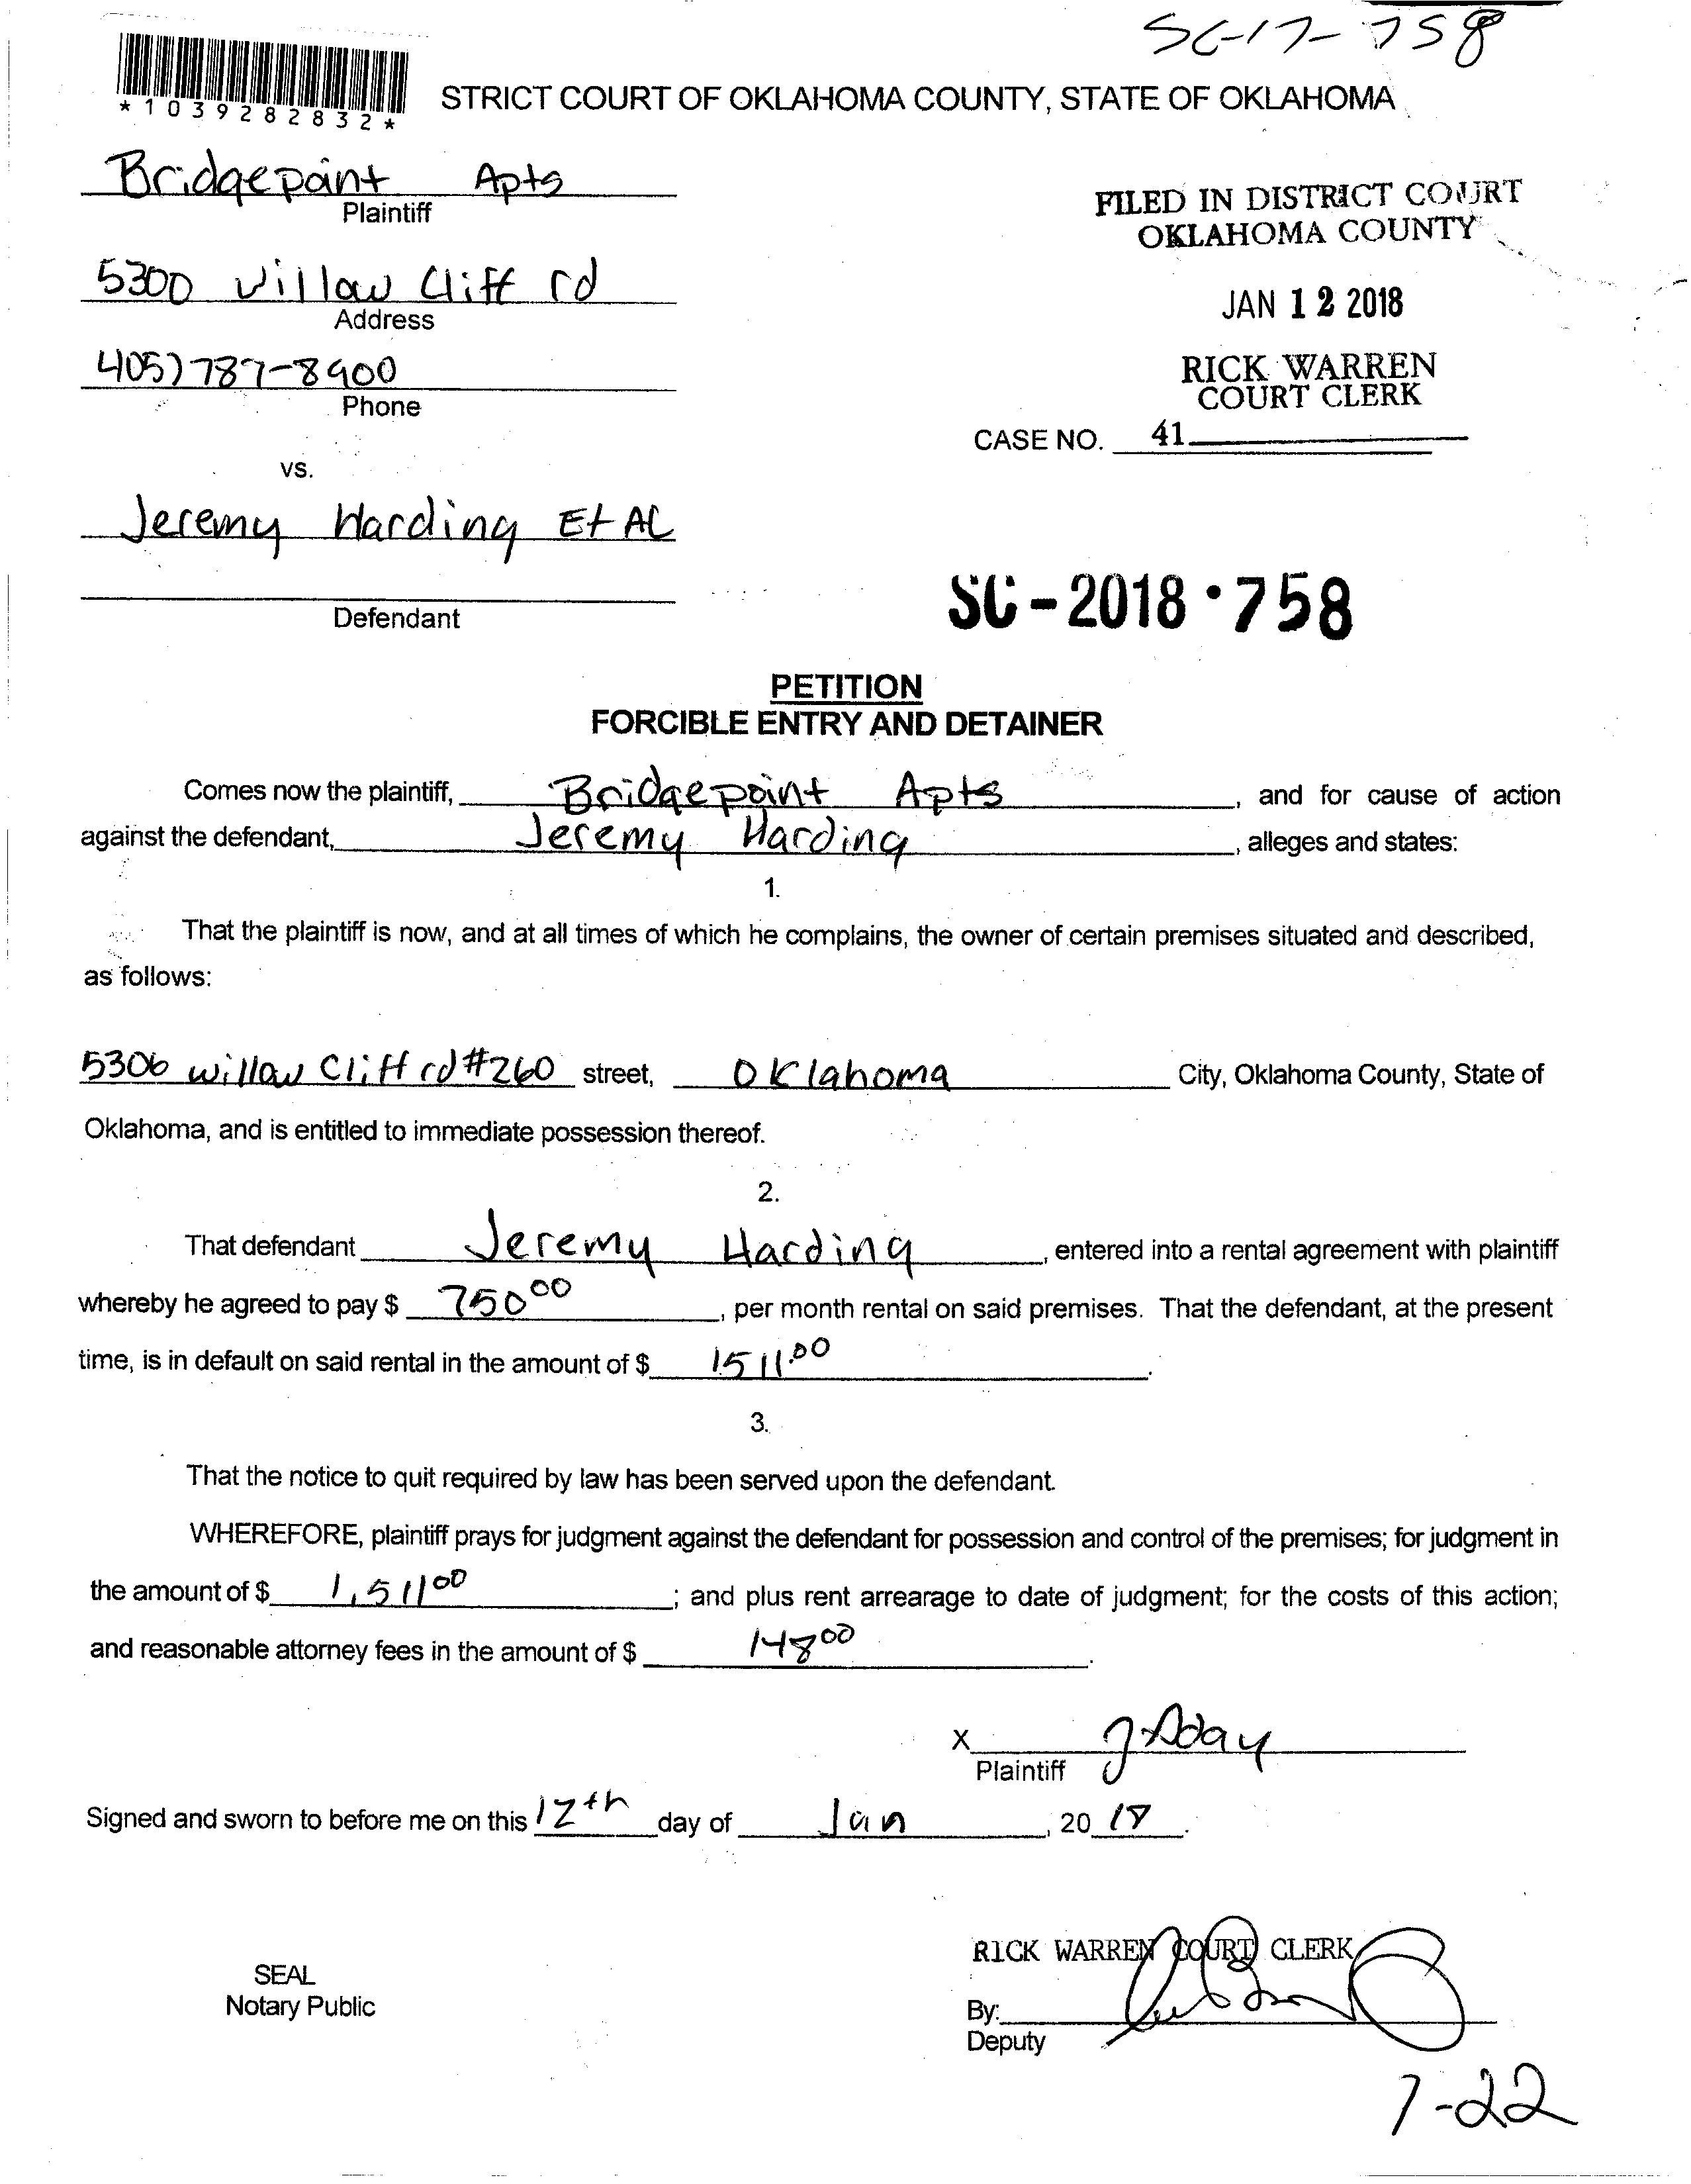 SC-17-758
*1039282832*
STRICT COURT OF OKLAHOMA COUNTY, STATE OF OKLAHOMA
Bridgepoint Apts
Plaintiff
FILED IN DISTRICT COURT
OKLAHOMA COUNTY
5300 Willow Cliff rd
Address
JAN 12 2018
405) 787-8900
Phone
RICK WARREN
COURT CLERK
CASE NO. 41
vs.
Jeremy Harding Et AL
Defendant
SC-2018·758
PETITION
FORCIBLE ENTRY AND DETAINER
Comes now the plaintiff, Bridgepoint Apts, and for cause of action
against the defendant, Jeremy Harding, alleges and states:
1.
That the plaintiff is now, and at all times of which he complains, the owner of certain premises situated and described,
as follows:
5306 willow Cliff rd #260 street, Oklahoma City, Oklahoma County, State of
Oklahoma, and is entitled to immediate possession thereof.
2.
That defendant Jeremy Harding, entered into a rental agreement with plaintiff
whereby he agreed to pay $ 750 00, per month rental on said premises. That the defendant, at the present
time, is in default on said rental in the amount of $ 1511.00.
3.
That the notice to quit required by law has been served upon the defendant.
WHEREFORE, plaintiff prays for judgment against the defendant for possession and control of the premises; for judgment in
the amount of $ 1,511 00; and plus rent arrearage to date of judgment; for the costs of this action;
and reasonable attorney fees in the amount of $ 148 00.
X J Aday
Plaintiff
Signed and sworn to before me on this 12th day of Jan, 20 18.
RICK WARREN COURT CLERK
SEAL
Notary Public
By:
Deputy
1-22